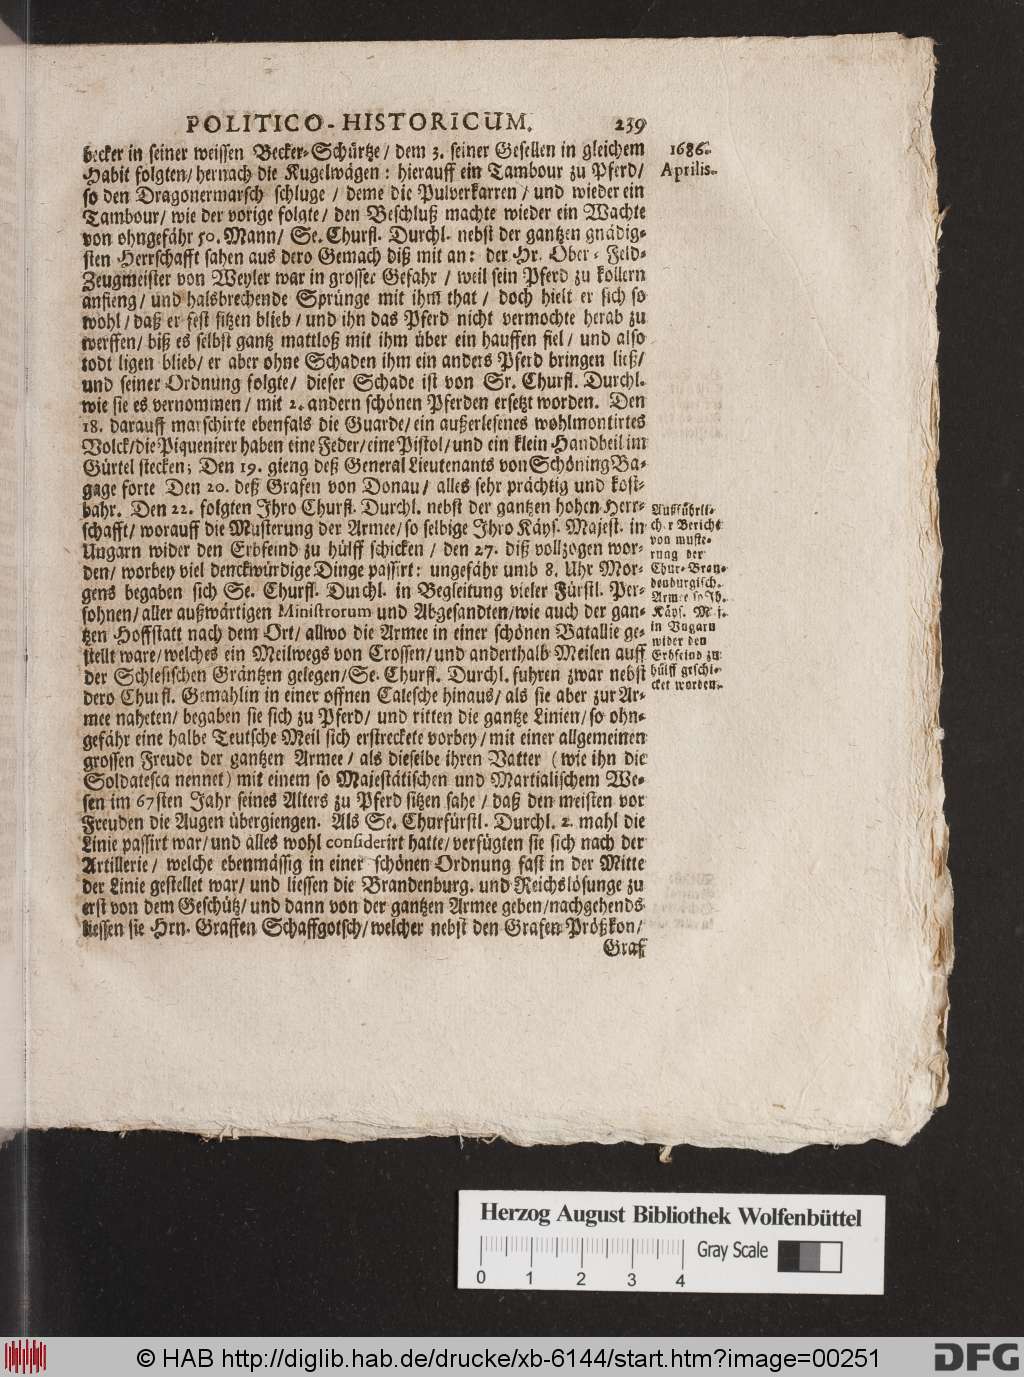 POLITICO-HISTORICUM. 239
becker in seiner weissen Becker-Schürtze / dem 3. seiner Gesellen in gleichem
Habit folgten / hernach die Kugelwägen : hierauff ein Tambour zu Pferd /
so den Dragonermarsch schluge / deme die Pulverkarren / und wieder ein
Tambour / wie der vorige folgte / den Beschluß machte wieder ein Wachte
von ohngefähr 50. Mann / Se. Churfl. Durchl. nebst der gantzen gnädig-
sten Herrschafft sahen aus dero Gemach diß mit an : der Hr. Ober-Feld-
Zeugmeister von Weyler war in grosser Gefahr / weil sein Pferd zu kollern
anfieng / und halsbrechende Sprünge mit ihm that / doch hielt er sich so
wohl / daß er fest sitzen blieb / und ihn das Pferd nicht vermochte herab zu
werffen / biß es selbst gantz mattloß mit ihm über ein hauffen fiel / und also
todt ligen blieb / er aber ohne Schaden ihm ein anders Pferd bringen ließ /
und seiner Ordnung folgte / dieser Schade ist von Sr. Churfl. Durchl.
wie sie es vernommen / mit 2. andern schönen Pferden ersetzt worden. Den
18. darauff marschirte ebenfals die Guarde / ein außerlesenes wohlmontirtes
Volck / die Piquenirer haben eine Feder / eine Pistol / und ein klein Handbeil im
Gürtel stecken ; Den 19. gieng deß General Lieutenants von Schöning Ba-
gage forte Den 20. deß Grafen von Donau / alles sehr prächtig und kost-
bahr. Den 22. folgten Ihro Churfl. Durchl. nebst der gantzen hohen Herr-
schafft / worauff die Musterung der Armee / so selbige Ihro Käys. Majest. in
Ungarn wider den Erbfeind zu hülff schicken / den 27. diß vollzogen wor-
den / worbey viel denckwürdige Dinge passirt : ungefähr umb 8. Uhr Mor-
gens begaben sich Se. Churfl. Durchl. in Begleitung vieler Fürstl. Per-
sohnen / aller außwärtigen Ministrorum und Abgesandten / wie auch der gan-
tzen Hoffstatt nach dem Ort / allwo die Armee in einer schönen Batallie ge-
stellt ware / welches ein Meilwegs von Crossen / und anderthalb Meilen auff
der Schlesischen Gräntzen gelegen / Se. Churfl. Durchl. fuhren zwar nebst
dero Churfl. Gemahlin in einer offnen Calesche hinaus / als sie aber zur Ar-
mee naheten / begaben sie sich zu Pferd / und ritten die gantze Linien / so ohn-
gefähr eine halbe Teutsche Meil sich erstreckete vorbey / mit einer allgemeinen
grossen Freude der gantzen Armee / als dieselbe ihren Vatter ( wie ihn die
Soldatesca nennet ) mit einem so Majestätischen und Martialischem We-
sen im 67sten Jahr seines Alters zu Pferd sitzen sahe / daß den meisten vor
Freuden die Augen übergiengen. Als Se. Churfürstl. Durchl. 2. mahl die
Linie passirt war / und alles wohl considerirt hatte / verfügten sie sich nach der
Artillerie / welche ebenmässig in einer schönen Ordnung fast in der Mitte
der Linie gestellet war / und liessen die Brandenburg. und Reichslösunge zu
erst von dem Geschütz / und dann von der gantzen Armee geben / nachgehends
liessen sie Hrn. Graffen Schaffgotsch / welcher nebst den Grafen Prößkon /
Graf
1686.
Aprilis.
Außführli-
cher Bericht
von muste-
rung der
Chur-Bran-
denburgisch.
Armee so Ih.
Käys. Maj.
in Ungarn
wider den
Erbfeind zu
hülff geschi-
cket worden.
Herzog August Bibliothek Wolfenbüttel
Gray Scale
0 1 2 3 4
© HAB http://diglib.hab.de/drucke/xb-6144/start.htm?image=00251
DFG